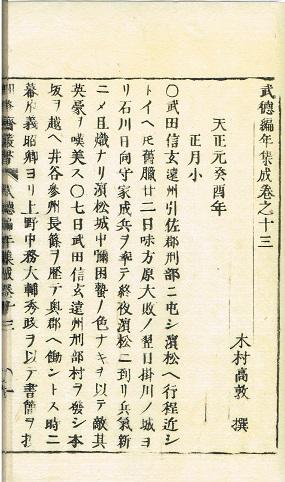 武德編年集成卷之十三
木村高敦 撰
天正元癸酉年
正月小
〇武田信玄遠州引佐郡刑部ニ屯シ濱松ヘ行程近シ
トイヘ𪜈舊臘廿二日味方原大敗ノ翌日掛川ノ城ヨ
リ石川日向守家成兵ヲ率テ終夜濱松ニ到リ兵氣新
ニメ且熾ナリ濱松城中彌困蟄ノ色ナキヲ以テ敵其
英豪ヲ嘆美ス〇七日武田信玄遠州刑部村ヲ發シ本
坂ヲ越ヘ井谷參州長篠ヲ歴テ奥郡ヘ働ントス時ニ
幕府義昭卿ヨリ上野中務大輔秀政ヲ以テ書簡ヲ投
武德編年集成卷十三